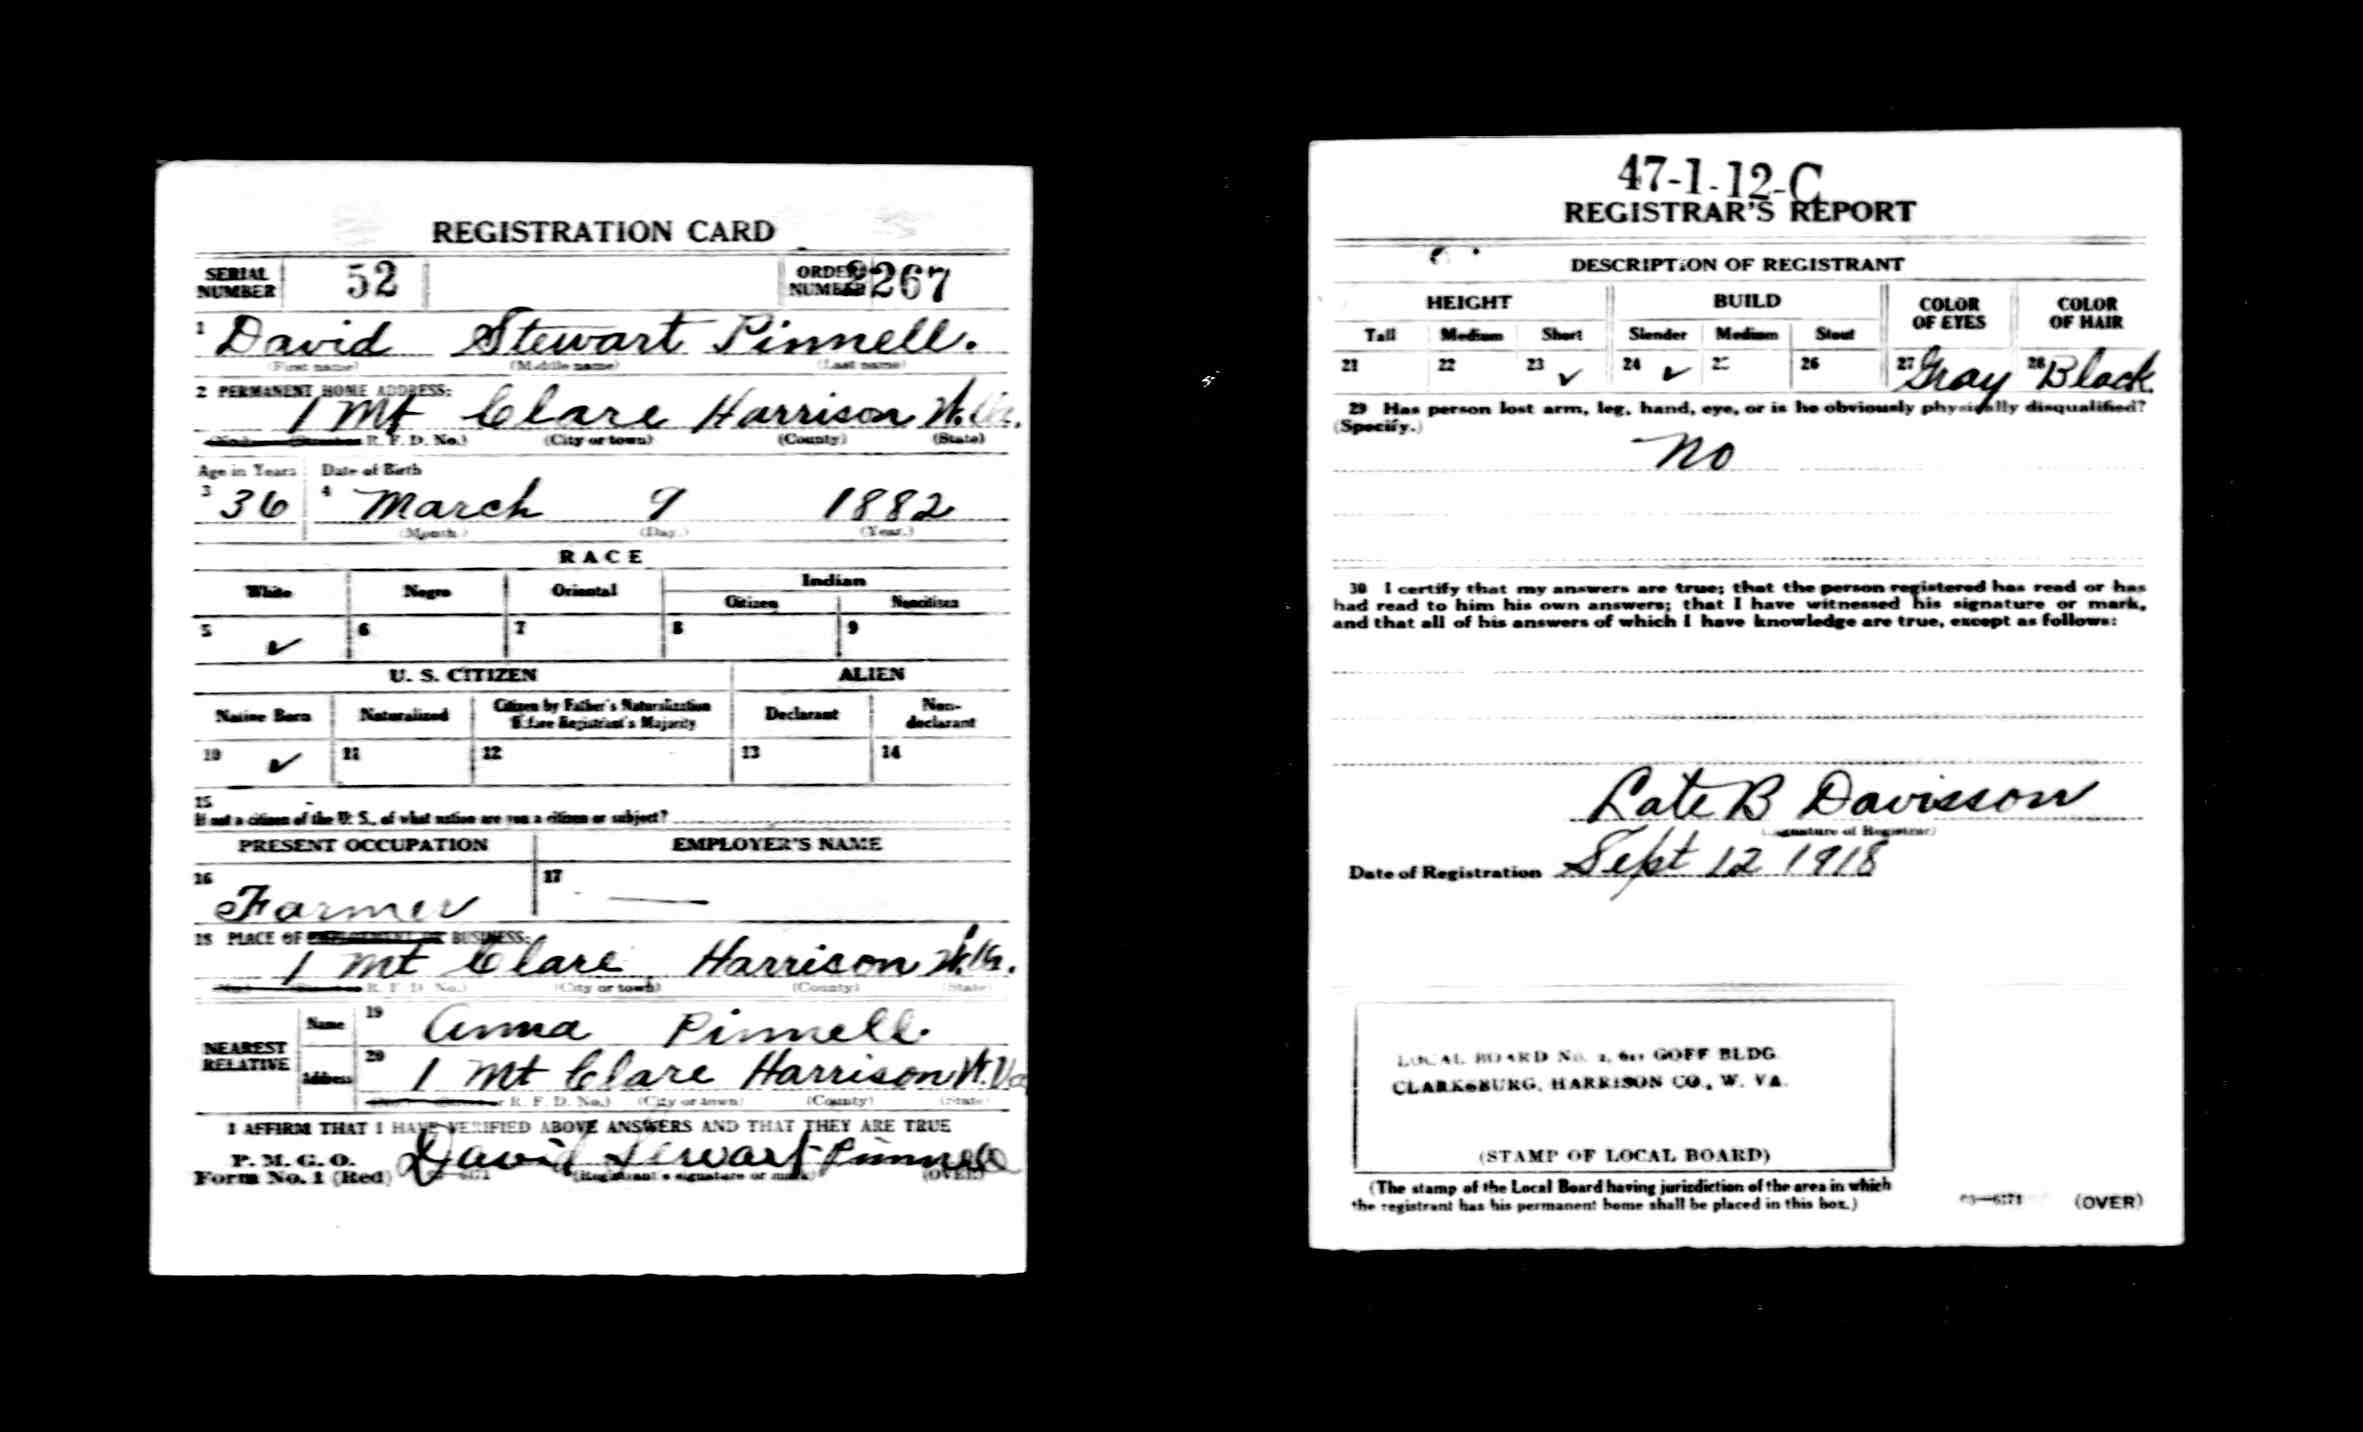 REGISTRATION CARD
SERIAL NUMBER 52 ORDER NUMBER 2267
1 David Stewart Pinnell.
(First name) (Middle name) (Last name)
2 PERMANENT HOME ADDRESS:
1 Mt Clare Harrison W. Va.
R. F. D. No.) (City or town) (County) (State)
Age in Years Date of Birth
3 36 4 March 9 1882
(Month) (Day.) (Year.)
RACE
White Negro Oriental Indian
Citizen Noncitizen
5 ✓ 6 7 8 9
U. S. CITIZEN ALIEN
Native Born Naturalized Citizen by Father's Naturalization Before Registrant's Majority Declarant Non-declarant
10 ✓ 11 12 13 14
15
If not a citizen of the U. S., of what nation are you a citizen or subject?
PRESENT OCCUPATION EMPLOYER'S NAME
16 Farmer 17 —
18 PLACE OF EMPLOYMENT OR BUSINESS:
1 Mt Clare Harrison W. Va.
R. F. D. No.) (City or town) (County) (State)
NEAREST RELATIVE Name 19 Anna Pinnell.
Address 20 1 Mt Clare Harrison W. Va
R. F. D. No.) (City or town) (County) (State)
I AFFIRM THAT I HAVE VERIFIED ABOVE ANSWERS AND THAT THEY ARE TRUE
P. M. G. O.
Form No. 1 (Red) David Stewart Pinnell
(Registrant's signature or mark) (OVER)
47-1-12-C
REGISTRAR'S REPORT
DESCRIPTION OF REGISTRANT
HEIGHT BUILD COLOR OF EYES COLOR OF HAIR
Tall Medium Short Slender Medium Stout
21 22 23 ✓ 24 ✓ 25 26 27 Gray 28 Black
29 Has person lost arm, leg, hand, eye, or is he obviously physically disqualified?
(Specify.)
No
30 I certify that my answers are true; that the person registered has read or has
had read to him his own answers; that I have witnessed his signature or mark,
and that all of his answers of which I have knowledge are true, except as follows:
Late B Davisson
(Signature of Registrar)
Date of Registration Sept 12 1918
LOCAL BOARD No. GOFF BLDG.
CLARKSBURG, HARRISON CO., W. VA.
(STAMP OF LOCAL BOARD)
(The stamp of the Local Board having jurisdiction of the area in which
the registrant has his permanent home shall be placed in this box.)
03—6171 (OVER)